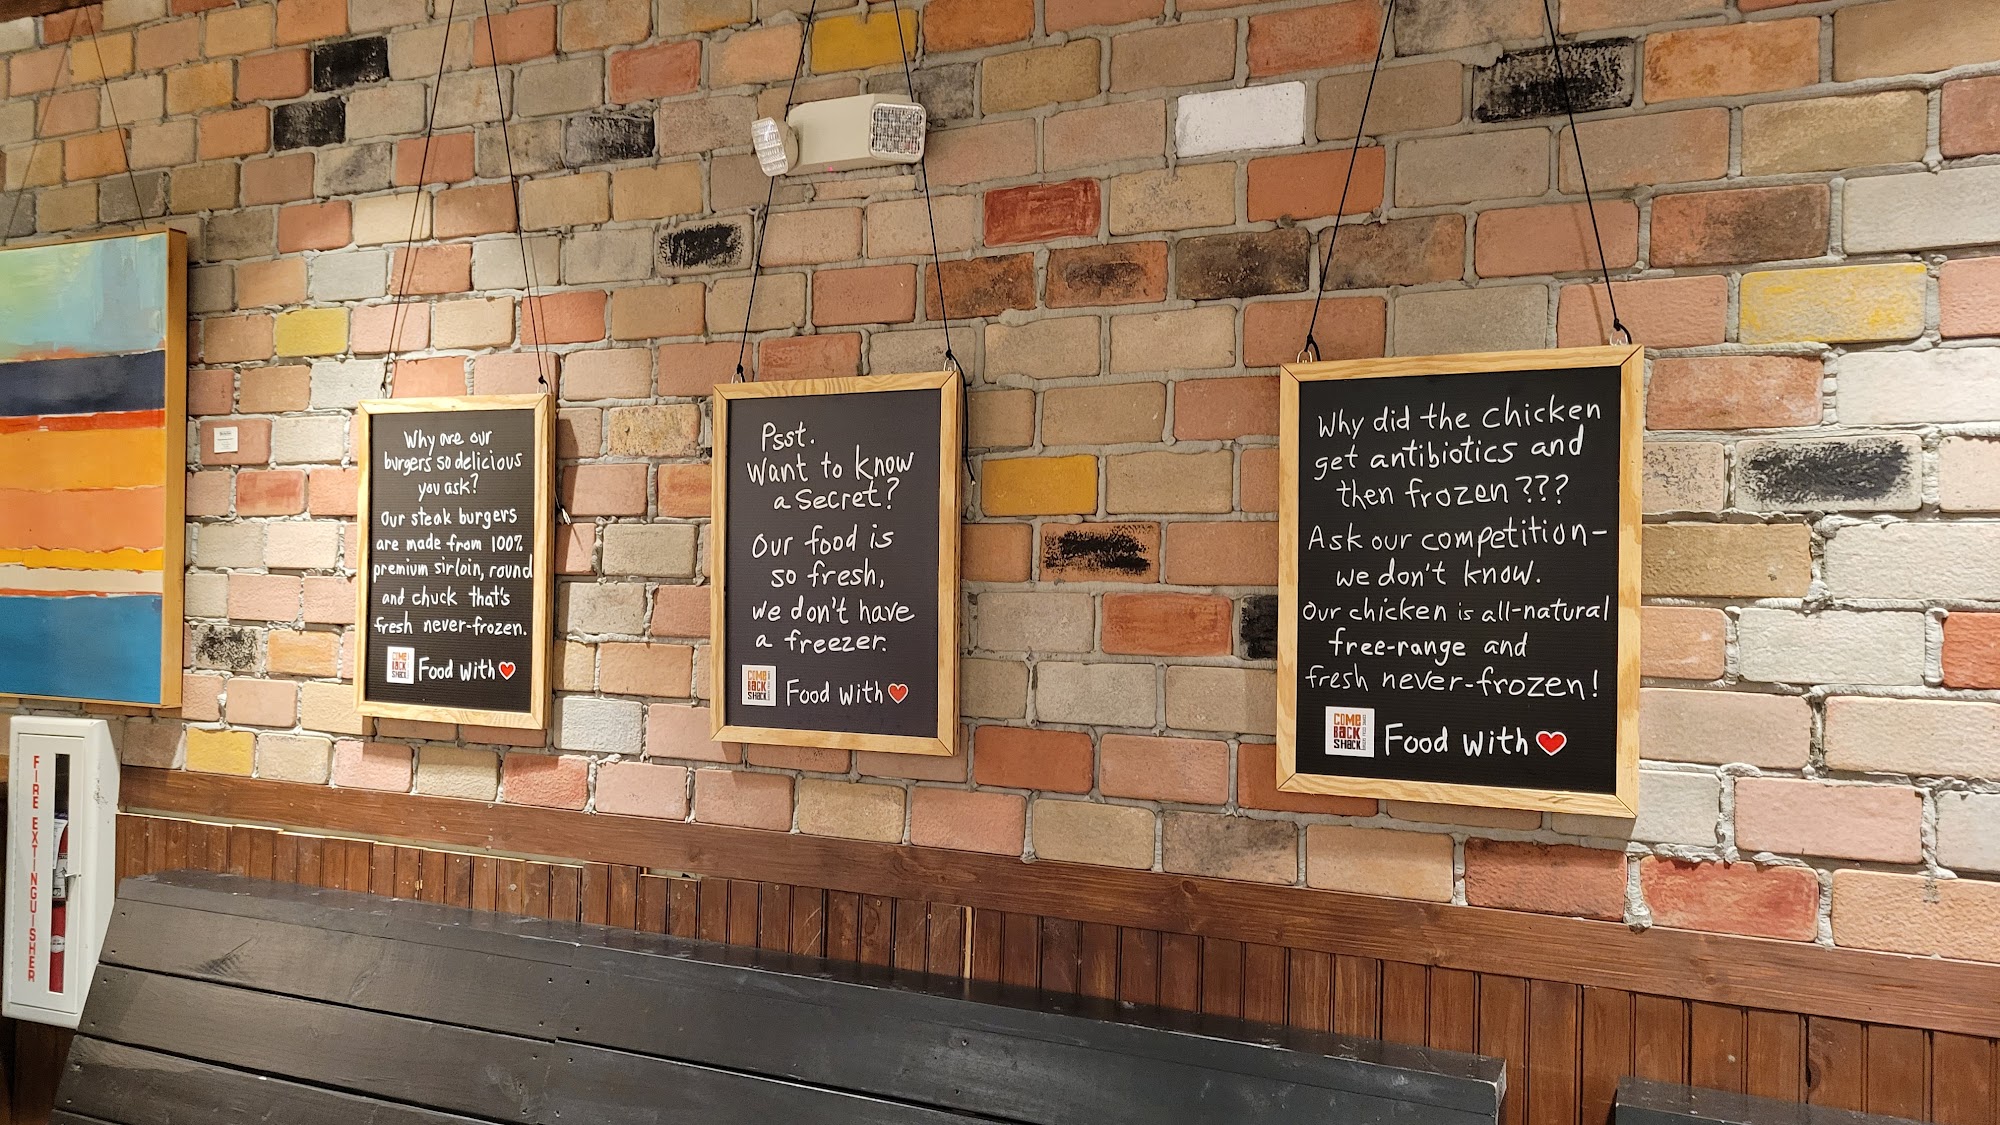 Why are our
burgers so delicious
you ask?
Our steak burgers
are made from 100%
premium sirloin, round
and chuck that's
fresh never-frozen.
COME
BACK
SHACK
Food with
Psst.
Want to know
a secret?
Our food is
so fresh,
we don't have
a freezer.
COME
BACK
SHACK
Food with
Why did the chicken
get antibiotics and
then frozen???
Ask our competition-
we don't know.
Our chicken is all-natural
free-range and
fresh never-frozen!
COME
BACK
SHACK
Food with
FIRE EXTINGUISHER